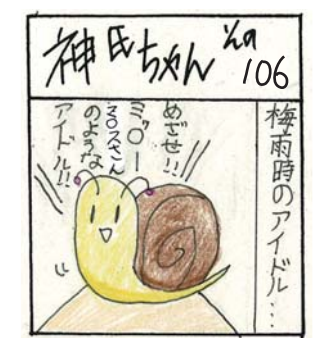 神氏ちゃん その
106
梅雨時のアイドル…
めざせ!!
ミッ○ー
マ○スさん
のような
アイドル!!